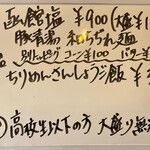 函館塩 ¥900(大盛¥1
豚青湯 和ちぢれ麺
別トッピング コーン¥100 バター¥
ちりめんさんしょうご飯 ¥3
高校生以下の方 大盛り無